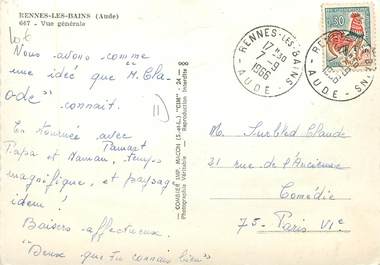 RENNES-LES-BAINS (Aude)
647 - Vue générale
Nous avons comme
une idée que "M. Cla-
ode" connait.
En tournée avec
Pamart
Papa et Maman, temps
magnifique, et paysage
idem !
Baisers affectueux.
"Deux que tu connais bien"
COMBIER IMP. MACON (S.-et-L.) "CIM" - 24
Photographie Véritable - Reproduction Interdite
RENNES-LES-BAINS
17 H30
7-9
1966
AUDE
0,30
M. Claude
21 rue de l'Ancienne
Comédie
75 - Paris VIe